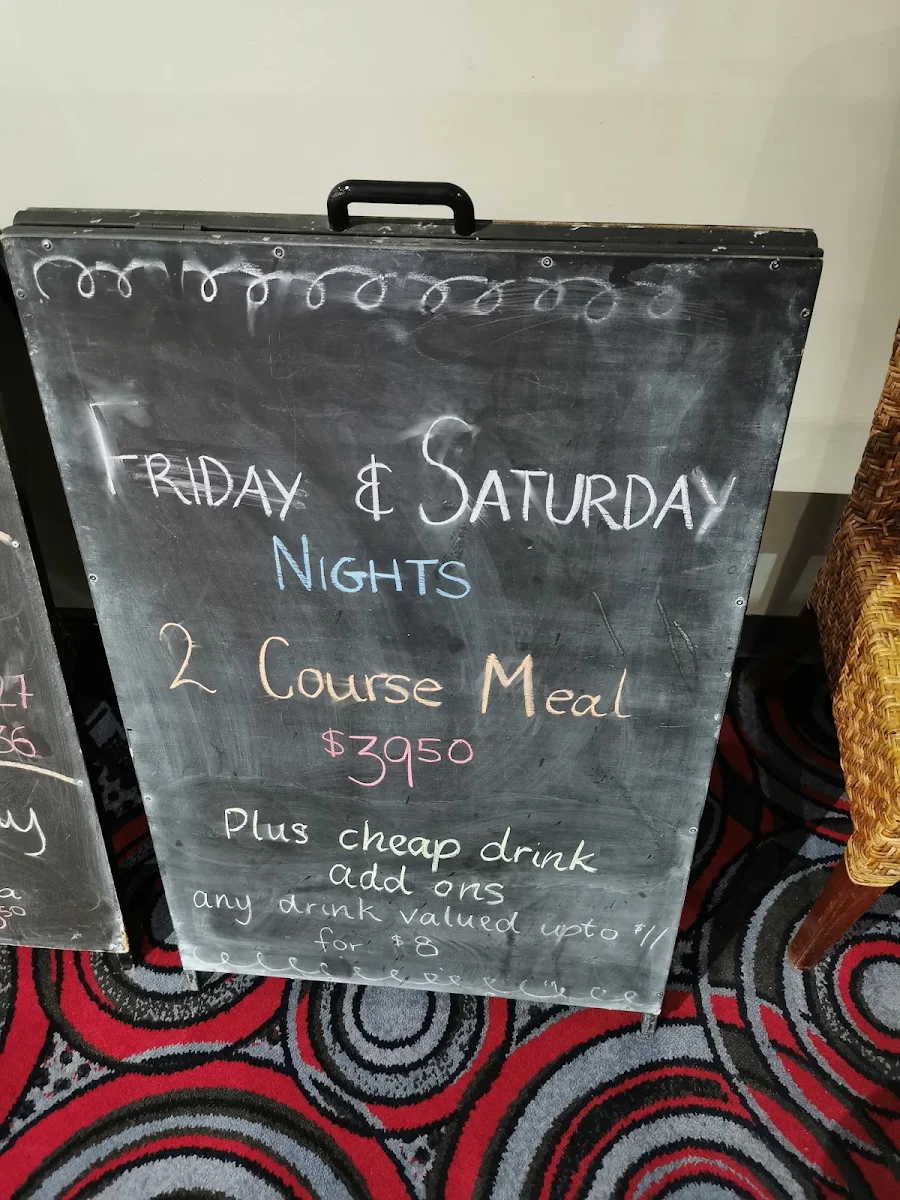 FRIDAY & SATURDAY
NIGHTS
2 Course Meal
$3950
Plus cheap drink
add ons
any drink valued upto $11
for $8
27
36
ay
a
50